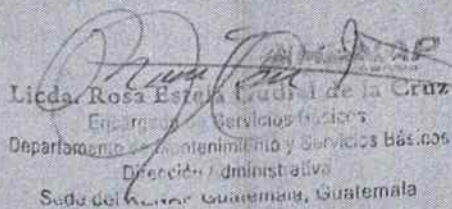 Licda. Rosa Estela de la Cruz
Encargada de Servicios Básicos
Departamento de Mantenimiento y Servicios Básicos
Dirección Administrativa
Sede del Guatemala, Guatemala